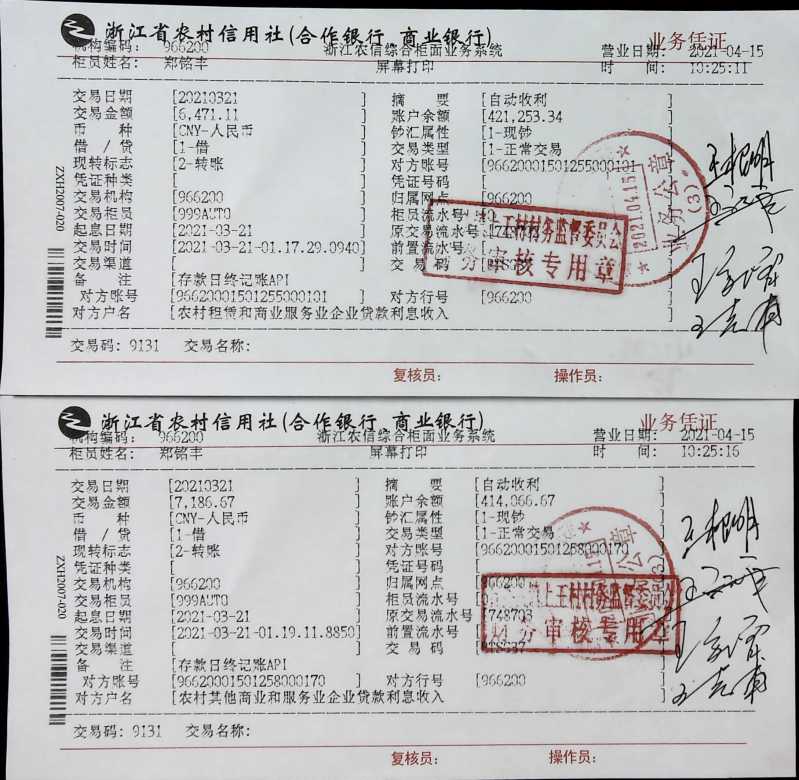 浙江省农村信用社(合作银行、商业银行) 业务凭证
机构编码: 966200 浙江农信综合柜面业务系统 营业日期: 2021-04-15
柜员姓名: 郑铭丰 屏幕打印 时 间: 10:25:11
交易日期 [20210321 ] 摘 要 [自动收利
交易金额 [6,471.11 ] 账户余额 [421,253.34
币 种 [CNY-人民币 ] 钞汇属性 [1-现钞
借 / 贷 [1-借 ] 交易类型 [1-正常交易
现转标志 [2-转账 ] 对方账号 [96620001501255000101
凭证种类 [ ] 凭证号码 [
交易机构 [966200 ] 归属网点 [966200
交易柜员 [999AUTO ] 柜员流水号
起息日期 [2021-03-21 ] 原交易流水号
交易时间 [2021-03-21-01.17.29.0940] 前置流水号
交易渠道 [ ] 交 易 码
备 注 [存款日终记账API
对方账号 [96620001501255000101 ] 对方行号 [966200 ]
对方户名 [农村租赁和商业服务业企业贷款利息收入 ]
交易码: 9131 交易名称:
复核员: 操作员:
ZXH2007-020
2021.04.15
业务公章
(3)
上王村村务监督委员会
财务审核专用章
王根明
浙江省农村信用社(合作银行、商业银行) 业务凭证
机构编码: 966200 浙江农信综合柜面业务系统 营业日期: 2021-04-15
柜员姓名: 郑铭丰 屏幕打印 时 间: 10:25:16
交易日期 [20210321 ] 摘 要 [自动收利
交易金额 [7,186.67 ] 账户余额 [414,066.67
币 种 [CNY-人民币 ] 钞汇属性 [1-现钞
借 / 贷 [1-借 ] 交易类型 [1-正常交易
现转标志 [2-转账 ] 对方账号 [96620001501258000170
凭证种类 [ ] 凭证号码 [
交易机构 [966200 ] 归属网点 [966200
交易柜员 [999AUTO ] 柜员流水号
起息日期 [2021-03-21 ] 原交易流水号 [748703
交易时间 [2021-03-21-01.19.11.8850] 前置流水号
交易渠道 [ ] 交 易 码
备 注 [存款日终记账API
对方账号 [96620001501258000170 ] 对方行号 [966200 ]
对方户名 [农村其他商业和服务业企业贷款利息收入 ]
交易码: 9131 交易名称:
复核员: 操作员:
ZXH2007-020
上王村村务监督委员会
财务审核专用章
王根明